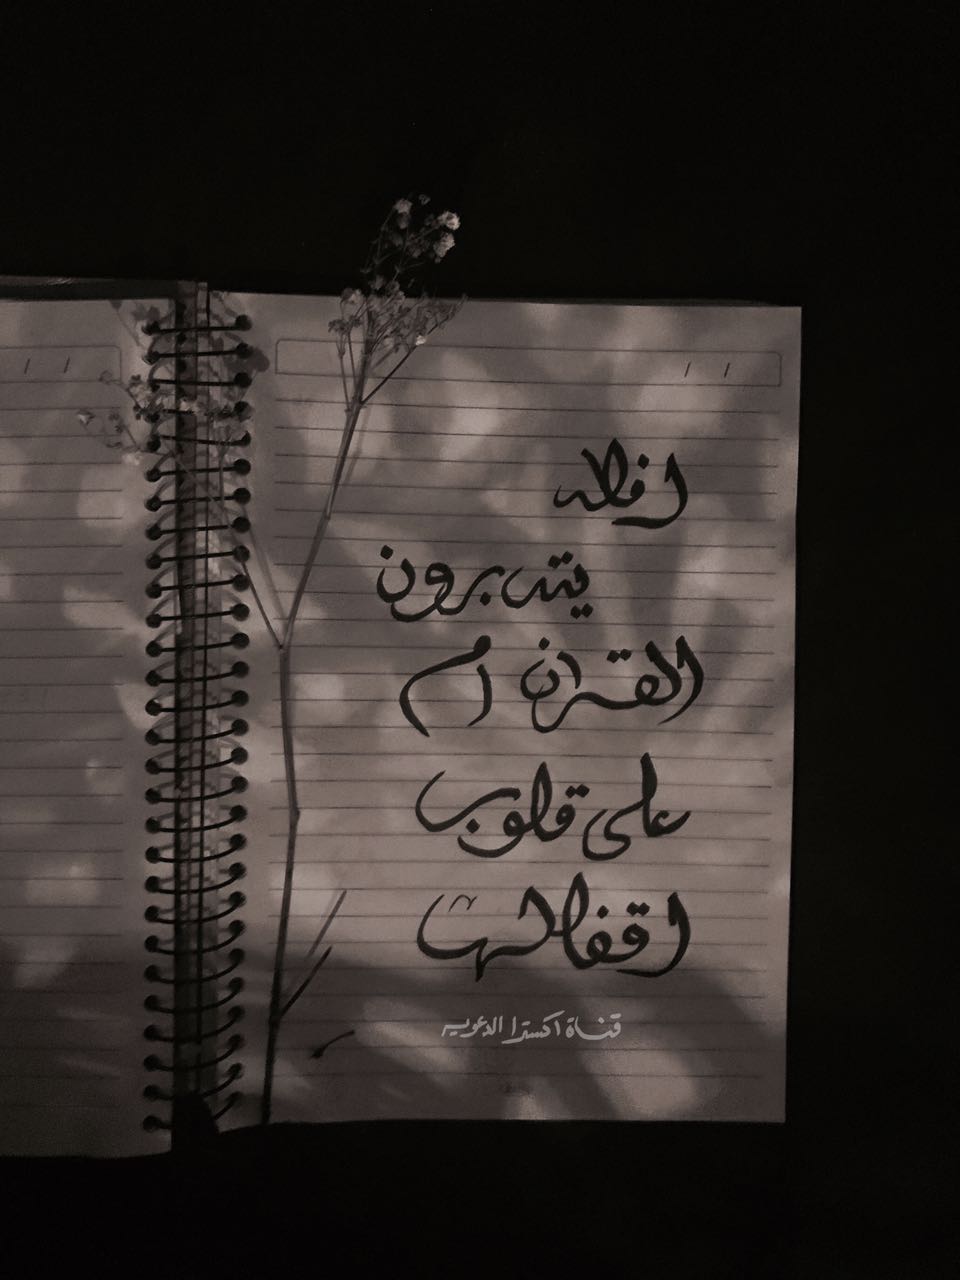 افلا
يتدبرون
القران ام
على قلوب
اقفالها
قناة اكسترا الدعويه